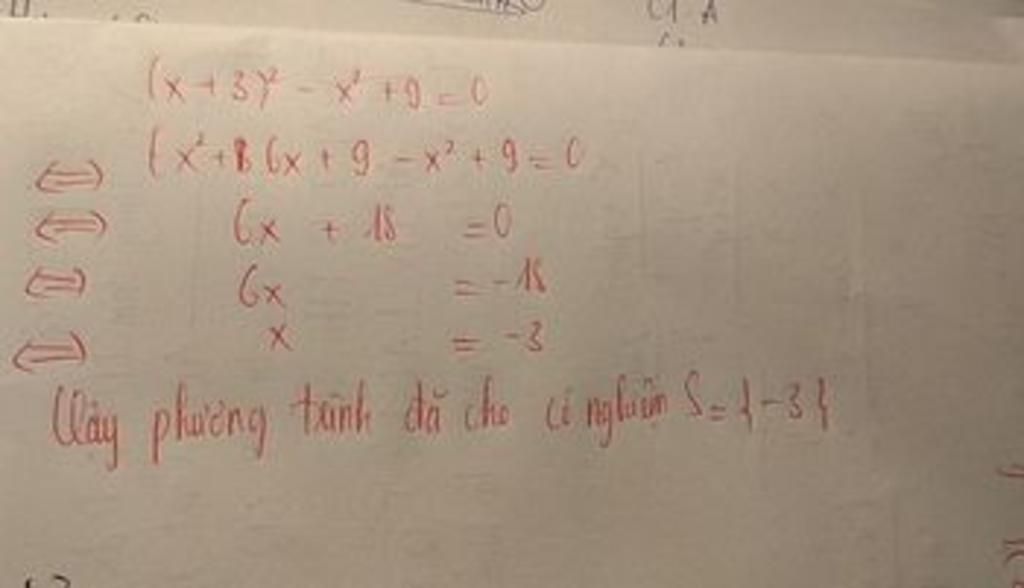 (x + 3)² - x² + 9 = 0
⇔ (x² + 6x + 9 - x² + 9 = 0
⇔ 6x + 18 = 0
⇔ 6x = -18
⇔ x = -3
Vậy phương trình đã cho có nghiệm S = {-3}